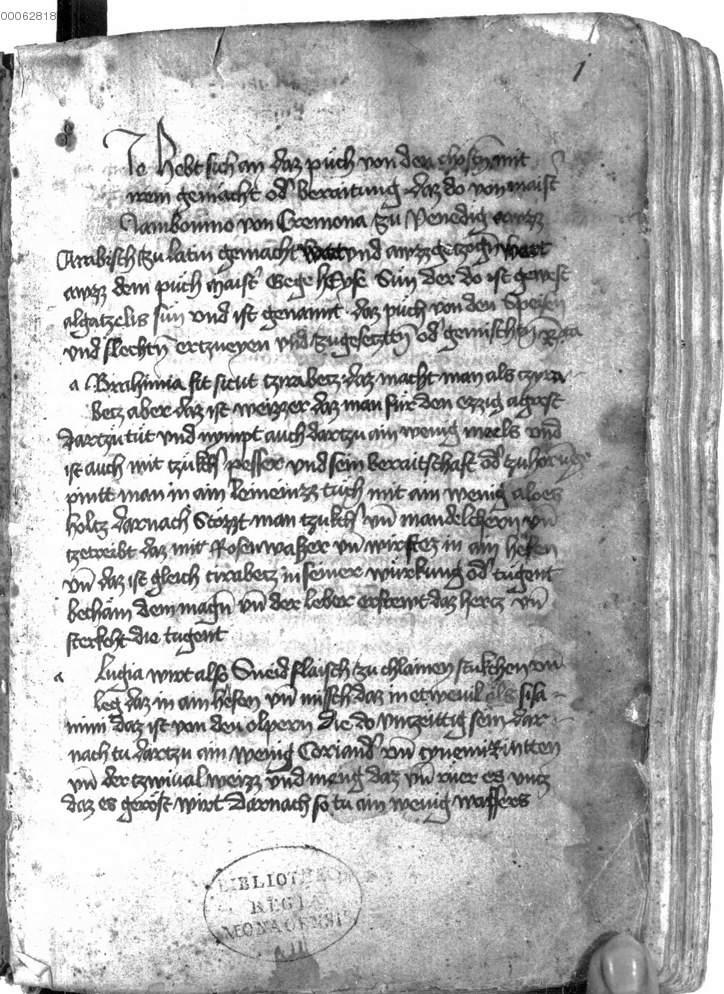 00062818
1
Ie Hebt sich an daz püch von den chostn mit
irem gemächt od' beraitung daz do von maist'
Jambonino von Cremona zu Venedig awzz
Arabisch zu latin gemacht und awzzgezogn
awzz dem püch maist' Gege sun der do ist gewest
algatzelis sun vnd ist genannt daz puch von den Speisen
vnd slechtn ertzneyen vnd zugesetztn od' gemischtn
a Brahimia fit sicut tzirabetz daz macht man als tzyra
betz aber daz ist weizzer daz man für den ezzig agrest
dartzu tüt vnd nympt auch dartzu ain wenig meels vnd
ist auch mit tzukk' pfeffer vnd sein beraitschaft od'
pintt man in ain leineinzz tuch mit ain wenig aloes
holtz darnach Stözzt man tzukk' vn̄ mandelchern vn̄
tzetreibt daz mit Rosenwazzer vn̄ wirftez in ain hefen
vn̄ daz ist gleich tzirabetz in seiner würkung od' tugent
dem magn̄ vn̄ der leber erfrewt daz hertz vn̄
sterkcht die tugent
a Lugia wirt also Sneid flaisch zu chlainen stukchen vn̄
leg daz in ain hefen vn̄ misch daz mit wenil als sisa
mim daz ist von den olpern die do vnzeittig sein dar
nach tu dartzu ain wenig Coriand' vn̄ cynemi Rintten
vn̄ der tzwiual weizz vnd meng daz vn̄ ruer es vntz
daz es geröst wirt Darnach so tu ain wenig wassers
BIBLIOTHECA
REGIA
MONACENSIS